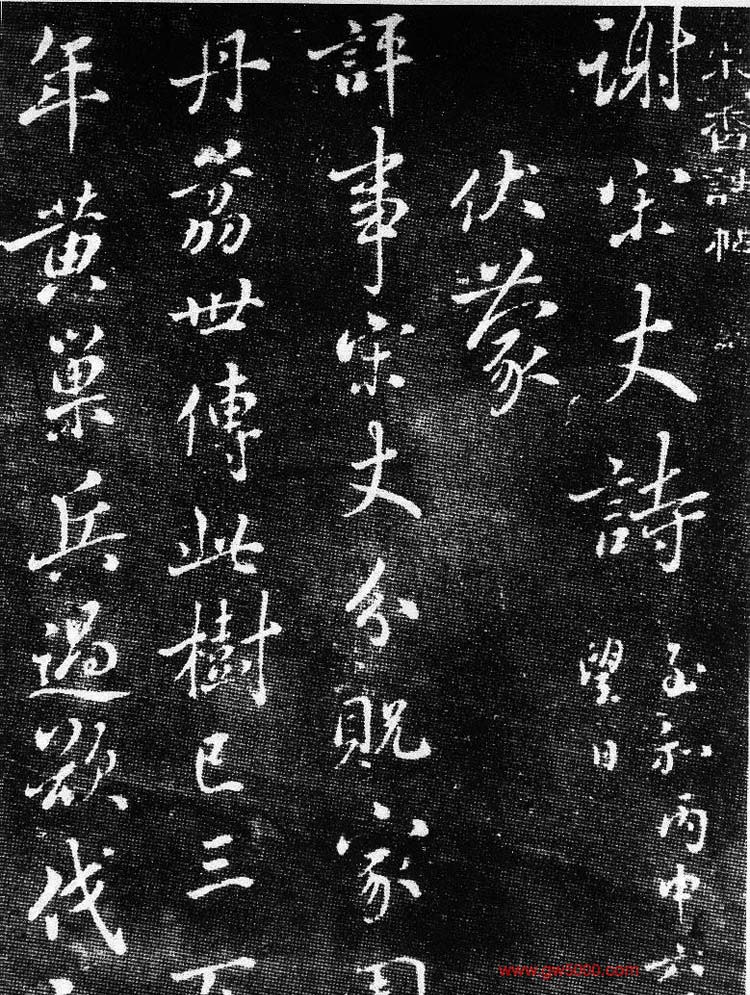 宋香詩帖
謝宋丈詩
至和丙申六
望日
伏蒙
評事宋丈分貺家園
丹荔世傳此樹已三百
年黄巢兵過欲伐
www.gw5000.com